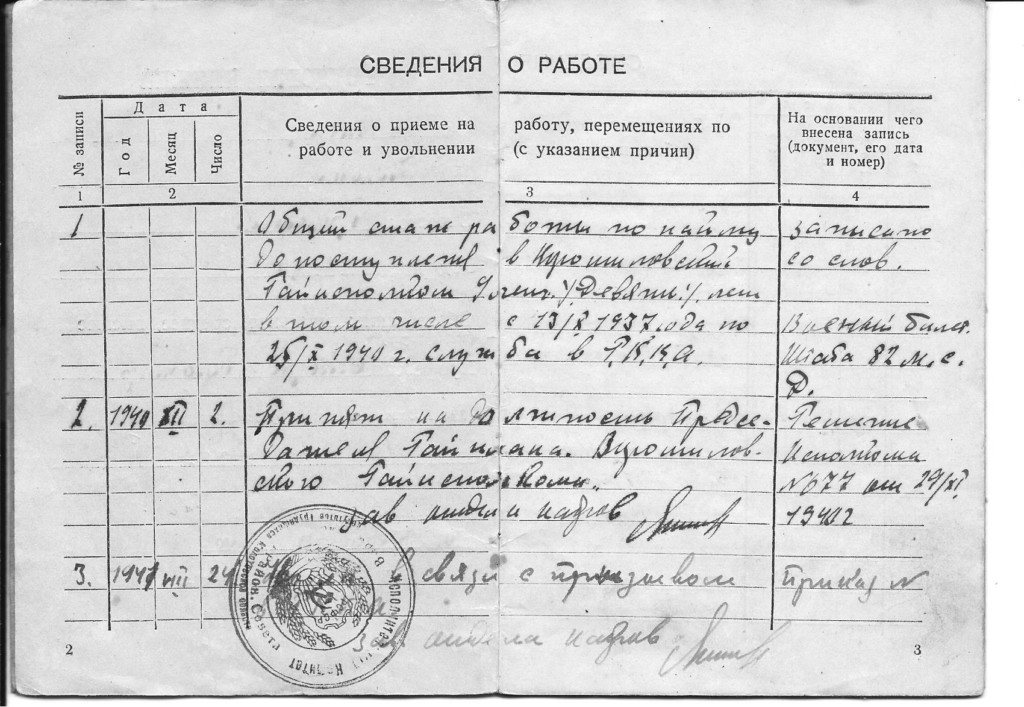 СВЕДЕНИЯ О РАБОТЕ
№ записи
Дата
Год
Месяц
Число
Сведения о приеме на работу, перемещениях по
работе и увольнении (с указанием причин)
На основании чего
внесена запись
(документ, его дата
и номер)
1 2 3 4
1 Общий стаж работы по найму записано
до поступления в Ворошиловский со слов.
Райисполком 9 /Девять/ лет
в том числе с 13/X 1937 года по Военный билет
25/X 1940 г. служба в Р.К.К.А. Штаба 82 м.с.
Д.
2. 1940 XII 2. Принят на должность Предсе- Решение
дателя Райплана Ворошилов- Исполкома
ского Райисполкома №677 от 29/XI
зав отделом кадров 1940г
3. 1941 VIII 24 В связи с призывом Приказ №
Зав отдела кадров
2
3